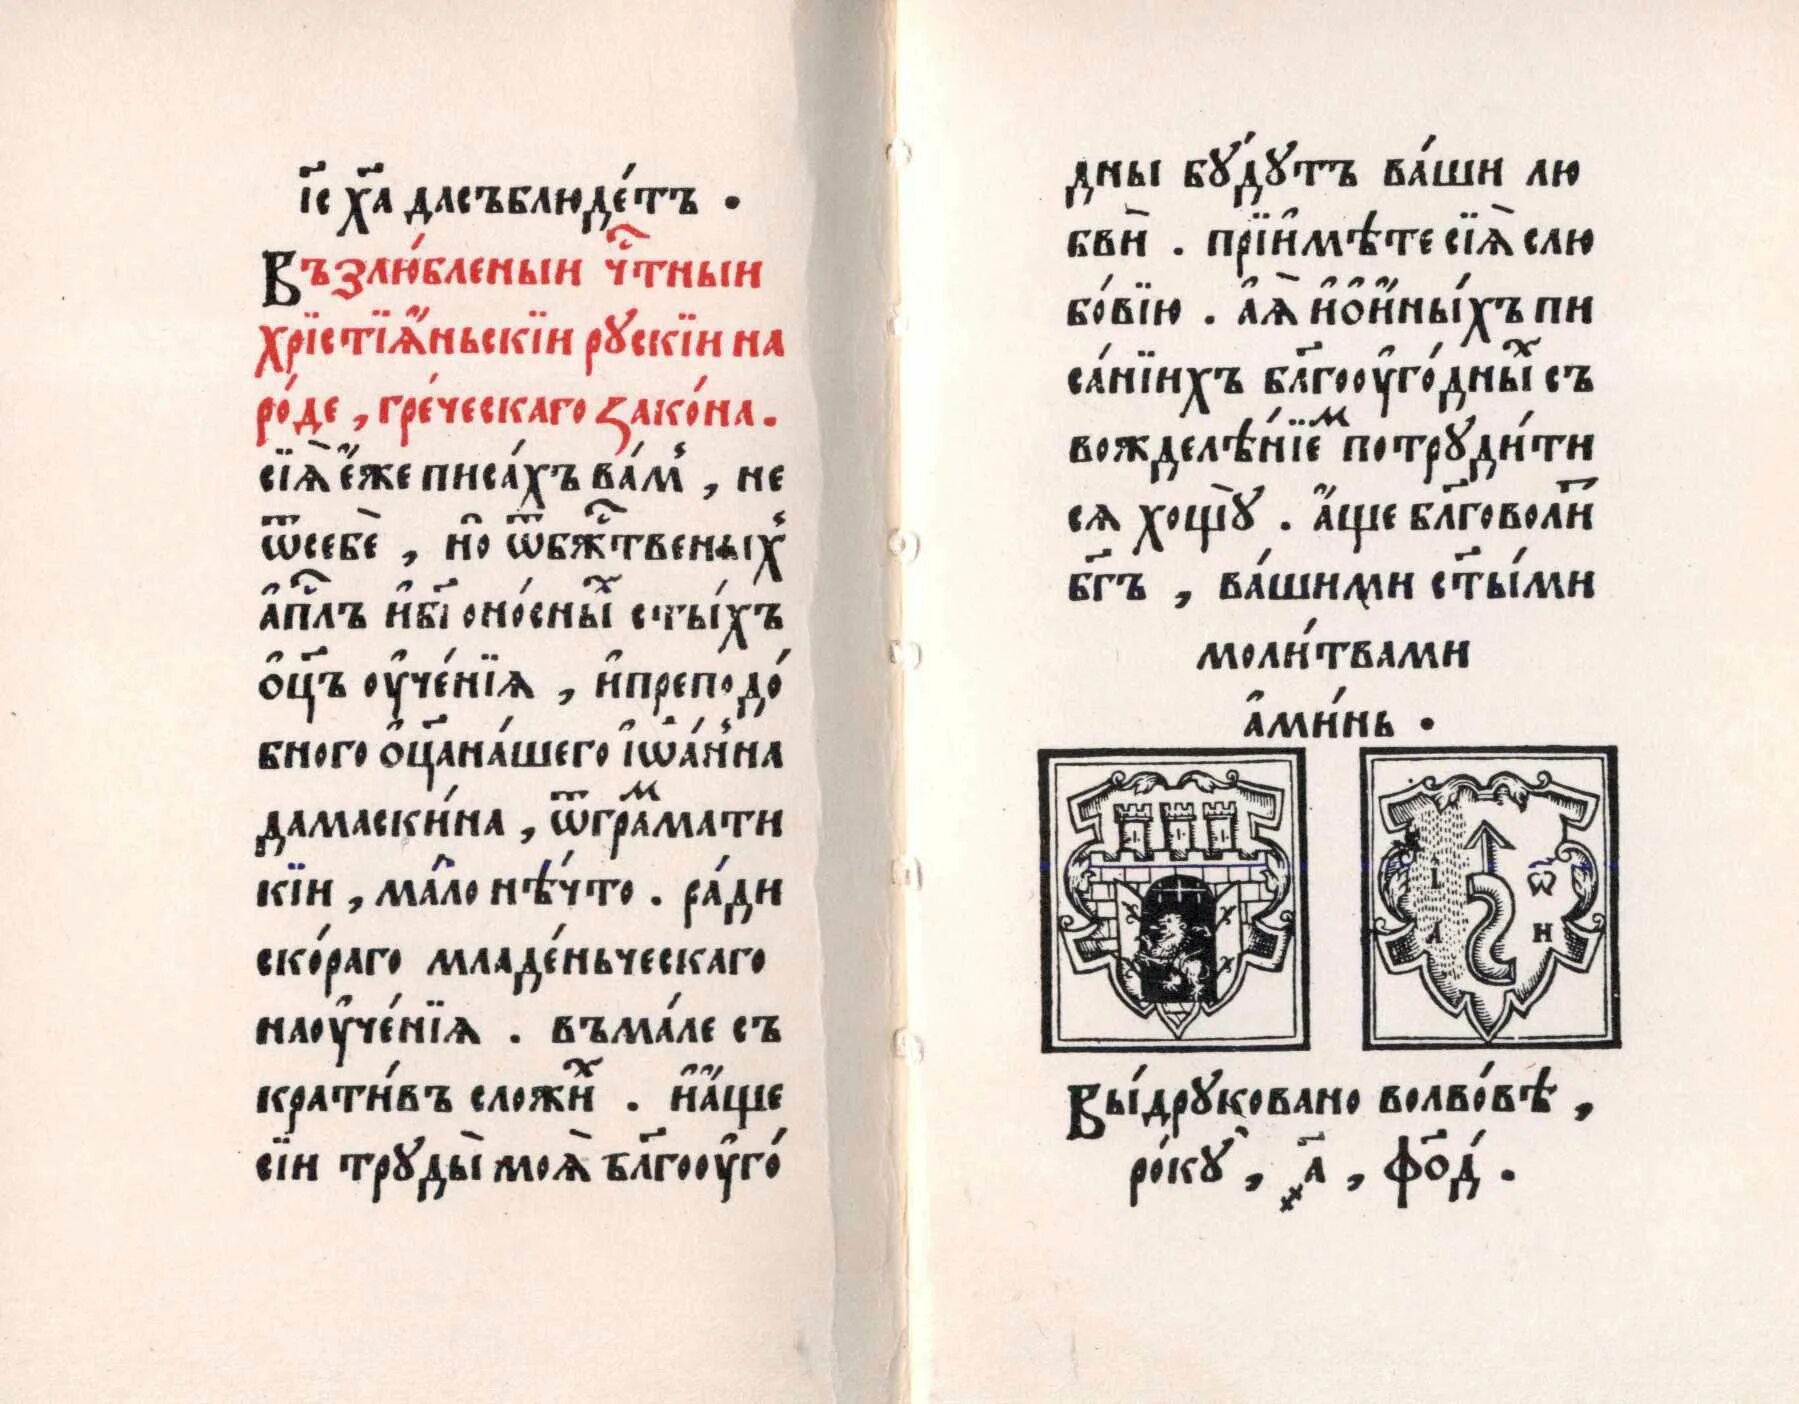 і҃с х҃а дасъблюде́тъ .
Възлю́бленыи чⷭ҇тныи
хрїстїѧ́ньскїи рꙋскїи на
ро́де , гре́ческаго зако́на .
сїѧ̀ е҆́же писа́хъ ва́мъ , не
ѿсебѐ , но̑ ѿбжⷭ҇твеныхъ
а҆пⷭ҇лъ и҆бг҃оно́сныⷯ ст҃ы́хъ
о҆ц҃ъ оу҆че́нїѧ , и҆преподо́
бного о҆ц҃ана́шего і҆ѡа́нна
дамаски́на , ѿгра́маⷨти
кїи , ма́ло нѣ́что . ра́ди
ско́раго младе́ньческаго
наоу҆че́нїѧ . въма́ле съ
крати́въ сложиⷯ . и҆а҆́ще
сїи трꙋды̀ моѧ̀ бл҃гооу҆го́
дны бꙋ́дꙋтъ ва́ши лю
бвѝ . прїи҆мѣ́те сїѧ̀ слю
бо́вїю . а҆ѧ̀ и҆о҆и҆ны́хъ пи
са́нїихъ бл҃гооу҆го́дныⷯ съ
вожделѣ́нїеⷨ потрꙋди́ти
сѧ хощꙋ̀ . а҆́ще бл҃говоли́т
бг҃ъ , ва́шими ст҃ы́ми
моли́твами
а҆ми́нь .
І Ѡ
А Н
Вы́дрꙋковано волво́вѣ ,
ро́кꙋ , ҂а҃ , фо҃д .